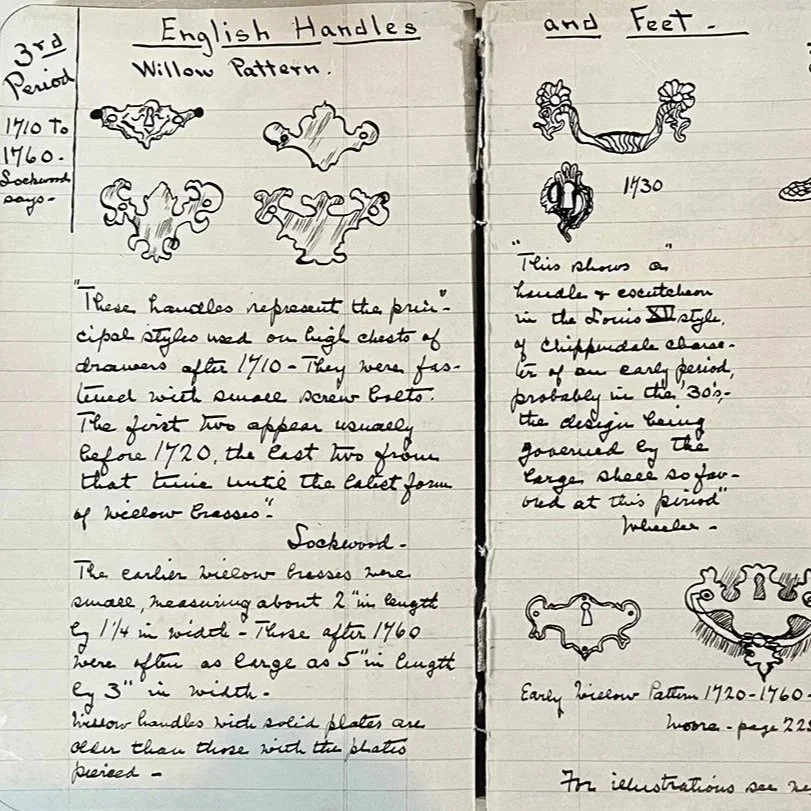 English Handles
Willow Pattern.
3rd
Period
1710 To
1760-
Lockwood
says-
"These handles represent the prin"-
cipal styles used on high chests of
drawers after 1710 - They were fas-
tened with small screw bolts.
The first two appear usually
before 1720, the last two from
that time until the latest form
of willow brasses"-
Lockwood-
The earlier willow brasses were
small, measuring about 2" in length
by 1 1/4 in width - Those after 1760
were often as large as 5" in length
by 3" in width-
Willow handles with solid plates are
older than those with the plates
pierced -
and Feet-
1730
"This shows a"
handle & escutcheon
in the Louis XV style,
of Chippendale charac-
ter of an early period,
probably in the '30s,-
the design being
governed by the
large shell so fav-
ored at this period"
Wheeler-
Early Willow Pattern 1720-1760-
Moore - page 225
For illustrations see